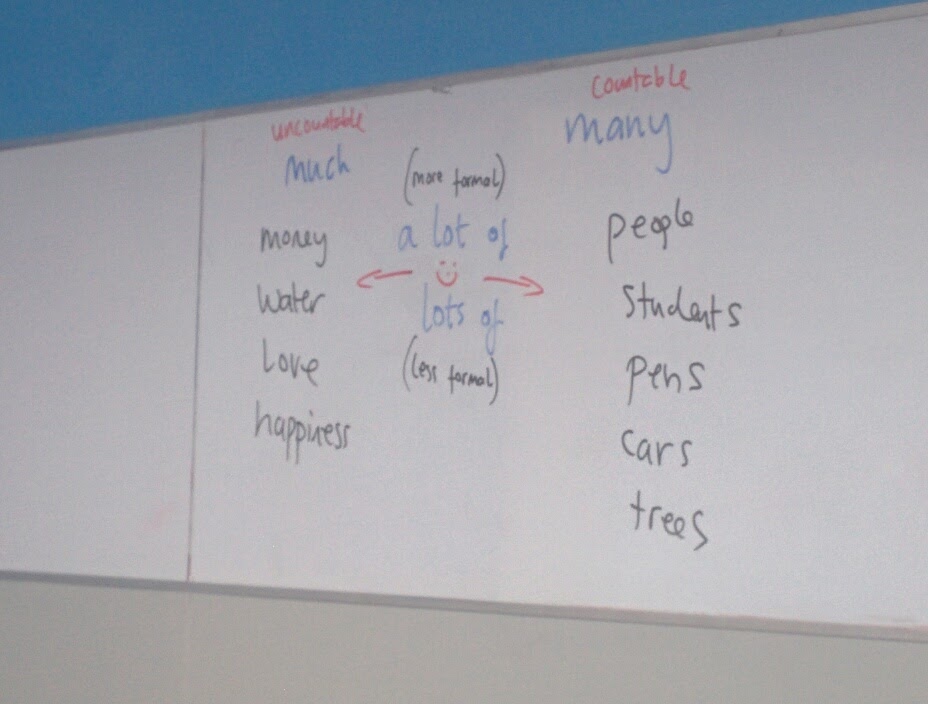 uncountable
much
money
water
love
happiness
(more formal)
a lot of
lots of
(less formal)
countable
many
people
students
pens
cars
trees